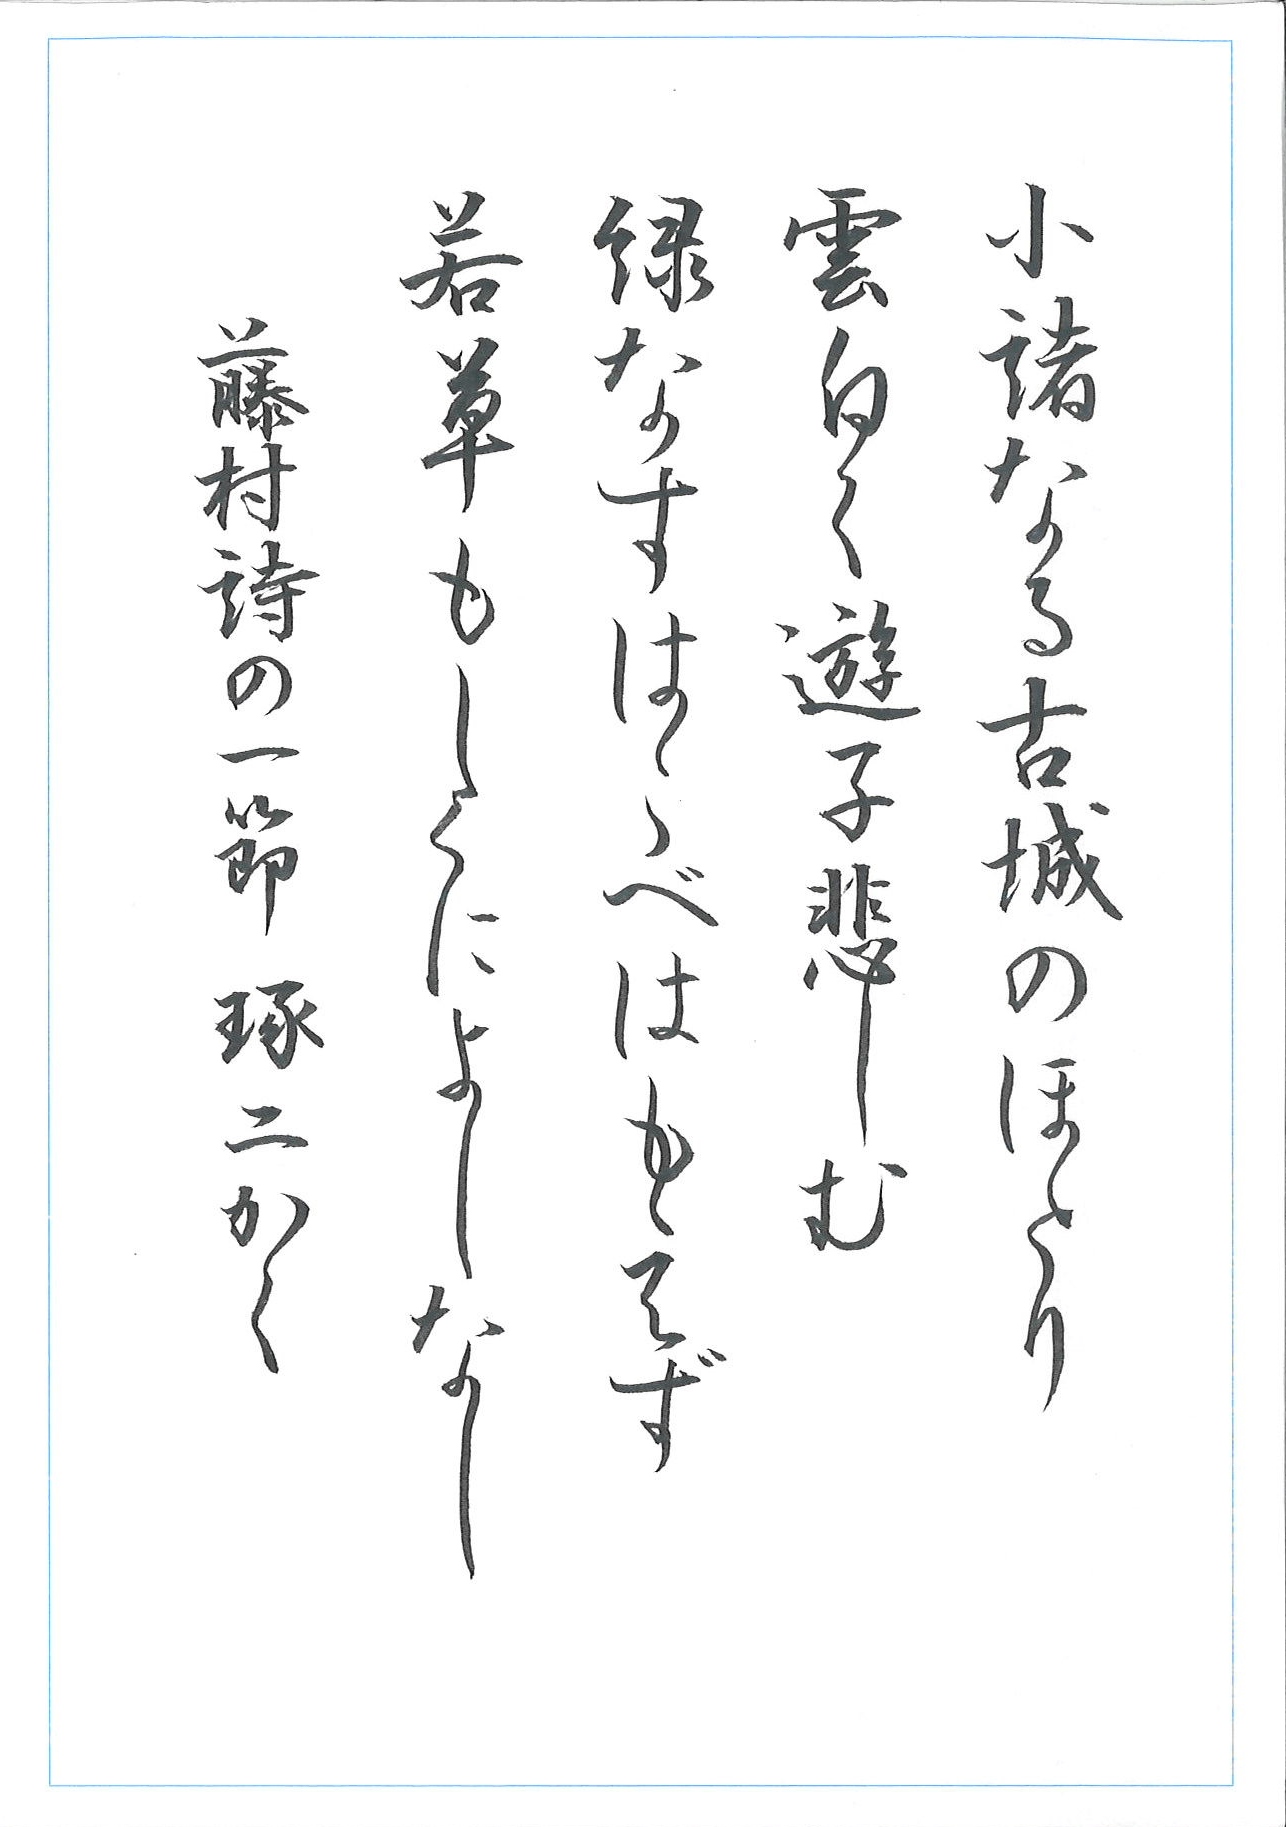 小諸なる古城のほとり
雲白く遊子悲しむ
緑なすはこべはもえず
若草もしくによしなし
藤村詩の一節 琢二かく